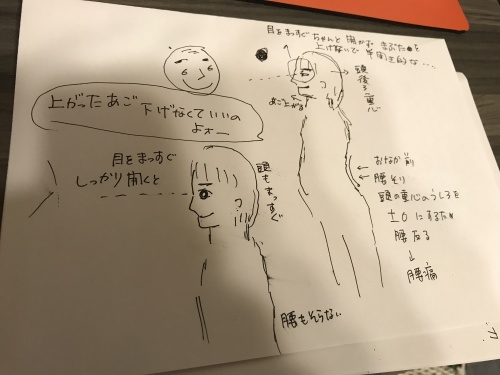 目をまっすぐちゃんと開かず まぶた●を
上げないで 半開き的な…
頭後ろ重心
あご上がる
上がったあご
下げなくていいの
よォー
目をまっすぐ
しっかり開くと
頭もまっすぐ
おなか前
腰そり
頭の重心のうしろを
±0にするため
腰反る
↓
腰痛
腰もそらない